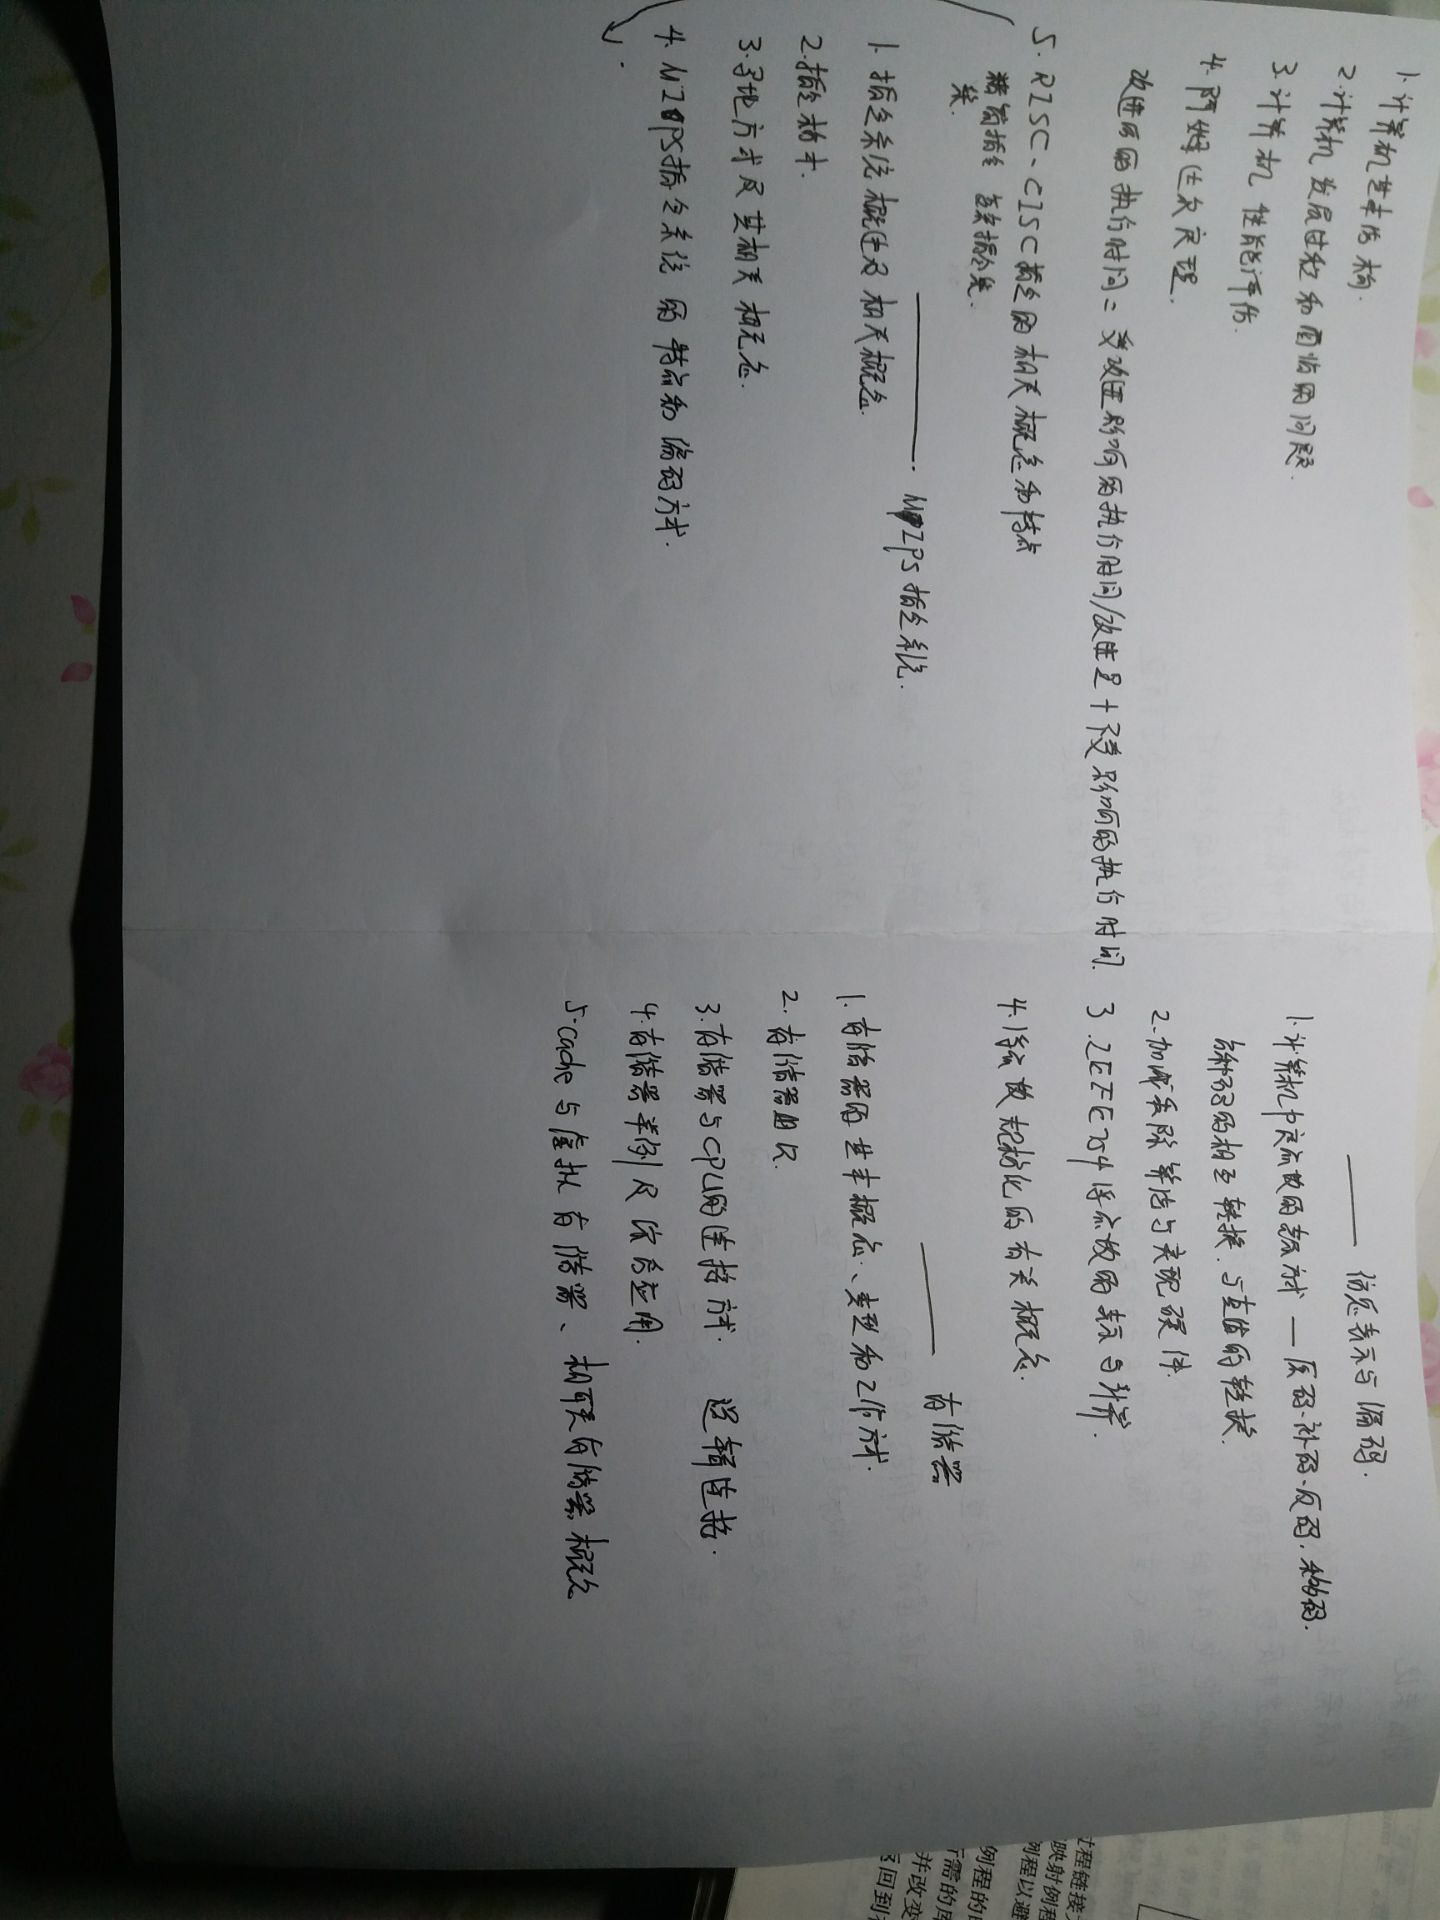 1. 计算机基本结构.
2. 计算机发展过程和面临的问题.
3. 计算机 性能评估.
4. 阿姆达尔定理.
改进后的执行时间 = 受改进影响的执行时间/改进量 + 不受影响的执行时间.
5. RISC、CISC指令的相关概念和特点
精简指令 复杂指令集.
集.
——— MIPS指令系统.
1. 指令系统概述及相关概念.
2. 指令格式.
3. 寻地方式及其相关概念.
4. MIPS指令系统的特点和编码方式.
——— 信息表示与编码.
1. 计算机中定点数的表示方式 — 原码、补码、反码、移码.
各种码的相互转换、与真值的转换.
2. 加减乘除算法与实现硬件.
3. IEEE754浮点数的表示与计算.
4. 浮点数规格化的有关概念.
——— 存储器
1. 存储器的基本概念、类型和工作方式.
2. 存储器组织.
3. 存储器与CPU的连接方式. 逻辑连接.
4. 存储器举例及综合应用.
5. cache与虚拟存储器、相联存储器概念
过程链接
映射例程
例程以避
例程的
所需的库
并改变
返回到